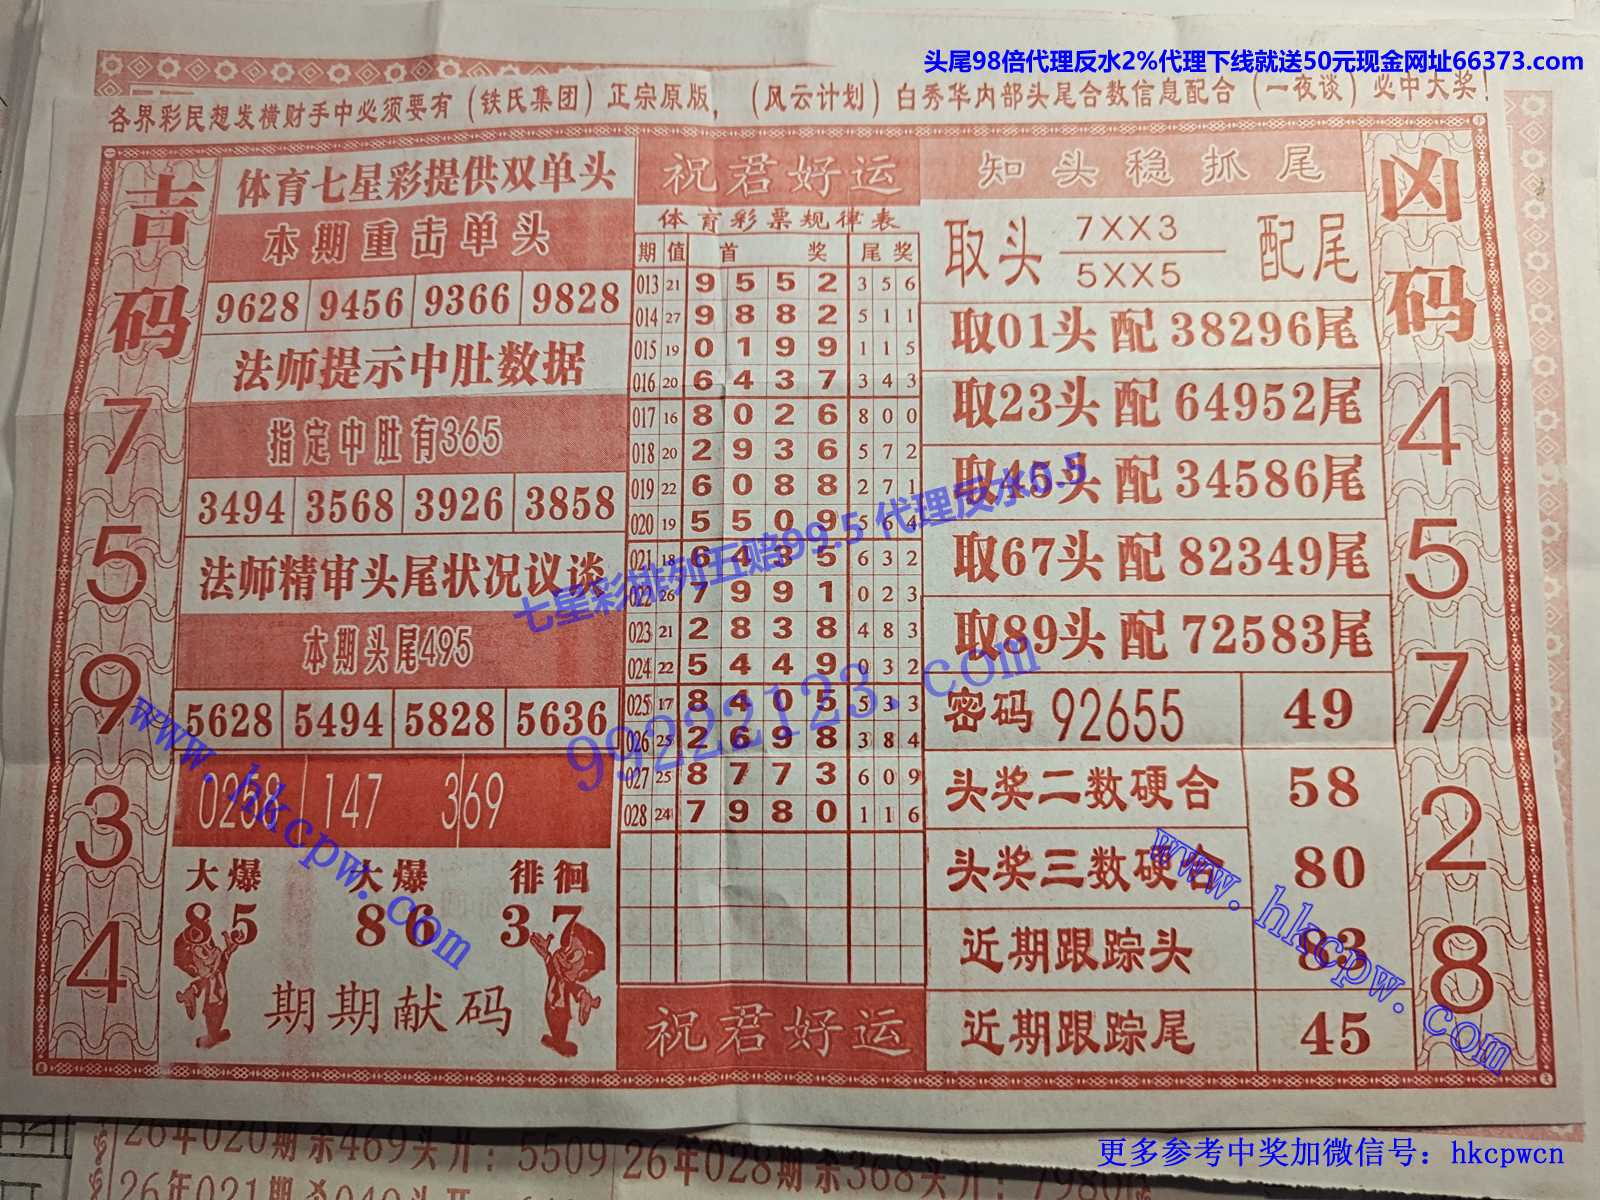 头尾98倍代理反水2%代理下线就送50元现金网址66373.com
各界彩民想发横财手中必须要有（铁氏集团）正宗原版，（风云计划）白秀华内部头尾合数信息配合（一夜谈）必中大奖！
吉码
7
5
9
3
4
体育七星彩提供双单头
本期重击单头
9628 9456 9366 9828
法师提示中肚数据
指定中肚有365
3494 3568 3926 3858
法师精审头尾状况议谈
本期头尾495
5628 5494 5828 5636
0258 147 369
大爆 大爆 徘徊
85 86 37
期期献码
祝君好运
体育彩票规律表
期 值 首 奖 尾 奖
013 21 9 5 5 2 3 5 6
014 27 9 8 8 2 5 1 1
015 19 0 1 9 9 1 1 5
016 20 6 4 3 7 3 4 3
017 16 8 0 2 6 8 0 0
018 20 2 9 3 6 5 7 2
019 22 6 0 8 8 2 7 1
020 19 5 5 0 9 5 6 4
021 18 6 4 3 5 6 3 2
022 26 7 9 9 1 0 2 3
023 21 2 8 3 8 4 8 3
024 22 5 4 4 9 0 3 2
025 17 8 4 0 5 5 3 3
026 25 2 6 9 8 3 8 4
027 25 8 7 7 3 6 0 9
028 24 7 9 8 0 1 1 6
祝君好运
知头稳抓尾
取头 7XX3 配尾
5XX5
取01头 配 38296尾
取23头 配 64952尾
取45头 配 34586尾
取67头 配 82349尾
取89头 配 72583尾
密码 92655 49
头奖二数硬合 58
头奖三数硬合 80
近期跟踪头 83
近期跟踪尾 45
凶码
4
5
7
2
8
七星彩排列五赔99.5 代理反水5.5
99222123.com
www.hkcpw.com
www.hkcpw.com
26年020期杀469头开：5509
26年028期杀368头开：7980
更多参考中奖加微信号：hkcpwcn